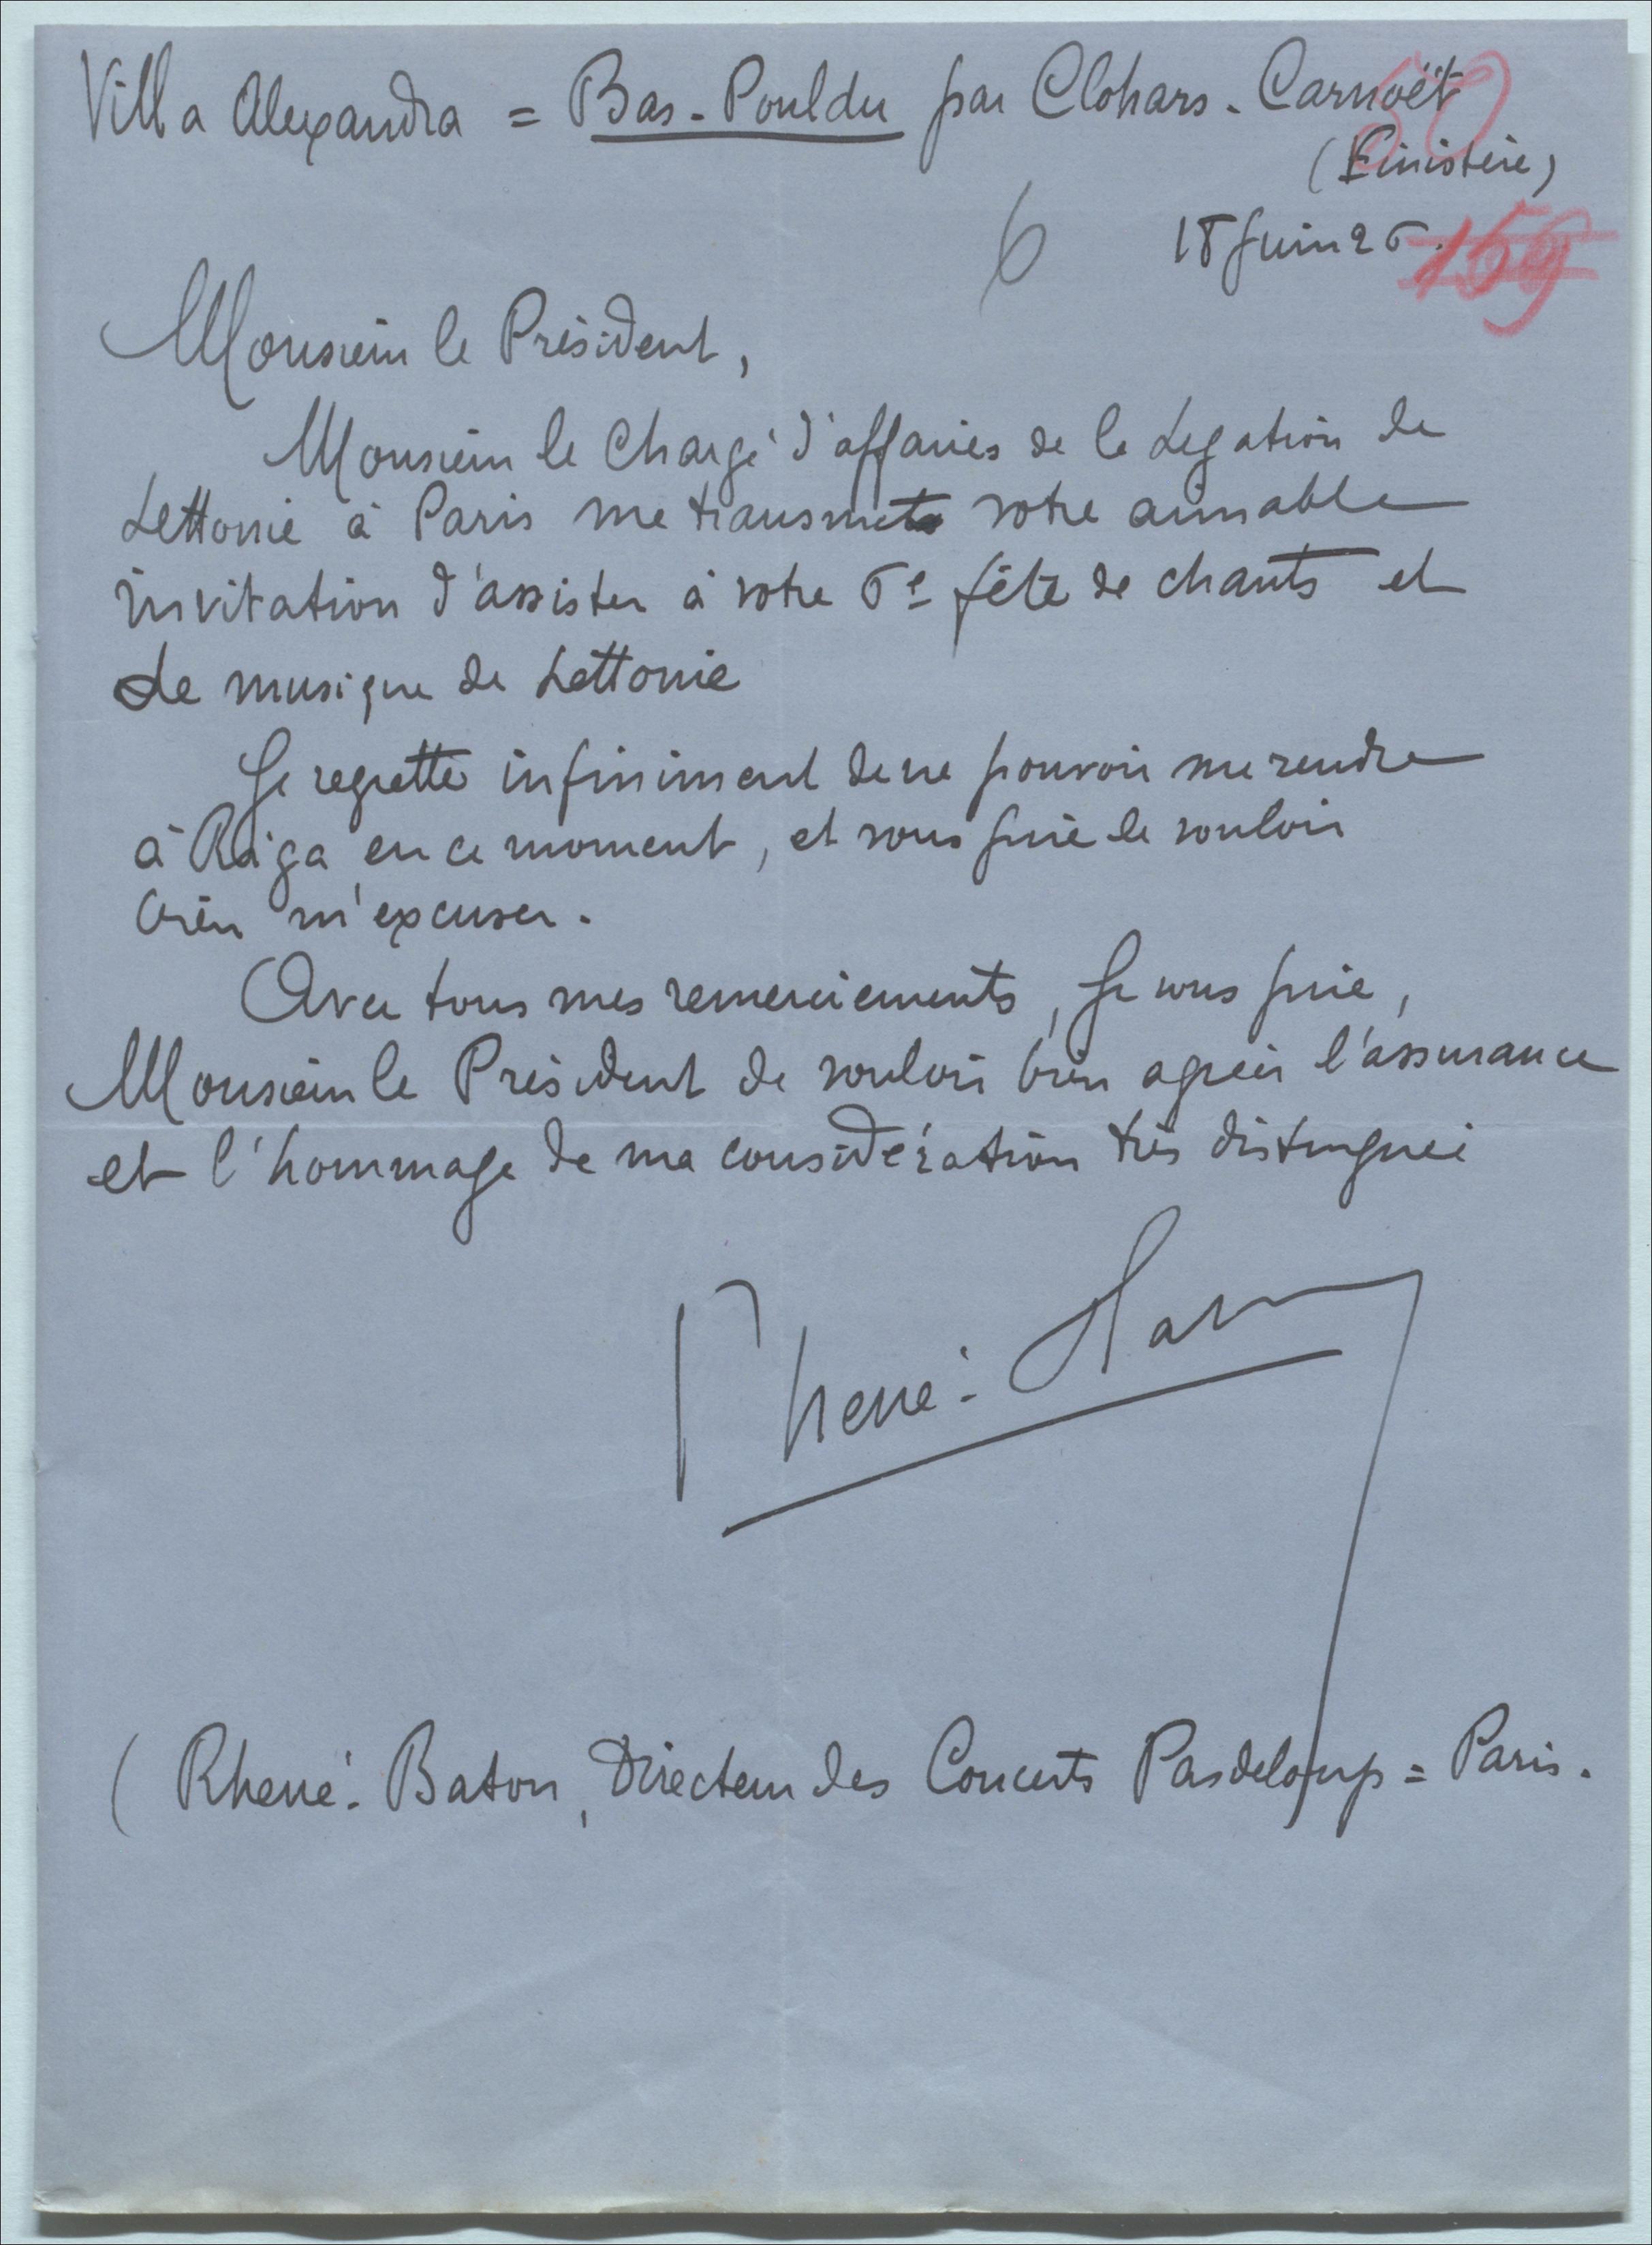 Villa Alexandra = Bas-Pouldu par Clohars-Carnoët
(Finistère)
6 18 Juin 26. 159
Monsieur le Président,
Monsieur le Chargé d'affaires de la Légation de
Lettonie à Paris me transmet votre aimable
invitation d'assister à votre 6e fête de chants et
de musique de Lettonie
Je regrette infiniment de ne pouvoir me rendre
à Riga en ce moment, et vous prie de vouloir
bien m'excuser.
Avec tous mes remerciements, je vous prie,
Monsieur le Président de vouloir bien agréer l'assurance
et l'hommage de ma considération très distinguée
Rhené-Baton
(Rhené-Baton, Directeur des Concerts Pasdeloup = Paris.